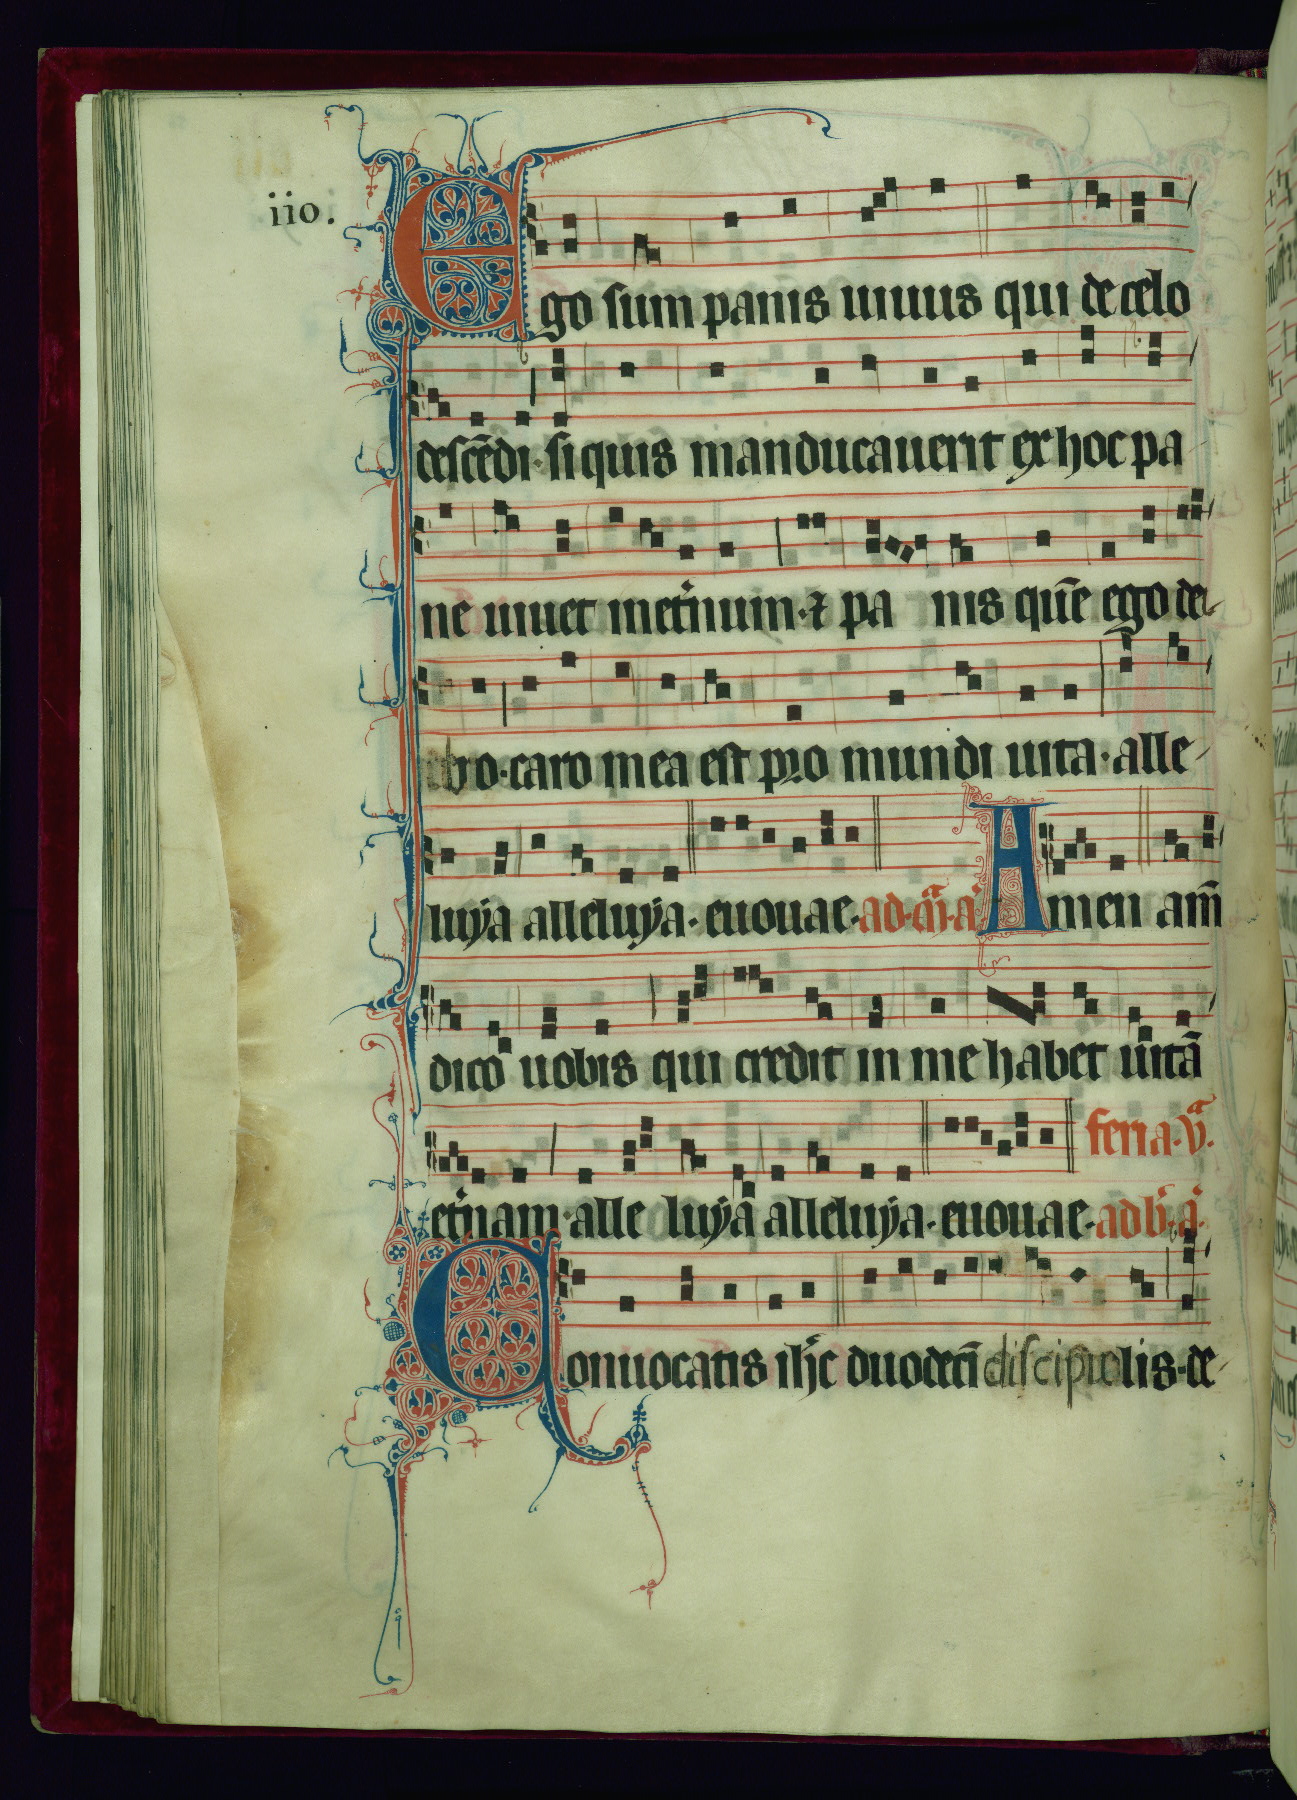 110.
Ego sum panis uiuus qui de celo
descēdi· si quis manducauerit ex hoc pa
ne uiuet inet̓num·⁊ pa nis quē ego de
bo·caro mea est pro mundi uita·alle
luÿa alleluÿa·euouae·ad·m̄·a Amen am̄
dico uobis qui credit in me habet uitā
et̓nam·alle luÿa alleluÿa·euouae·ad b̓·a̓·
feria·v̄ͣ·
Conuocatis ih̓c duodecī discipolis·de